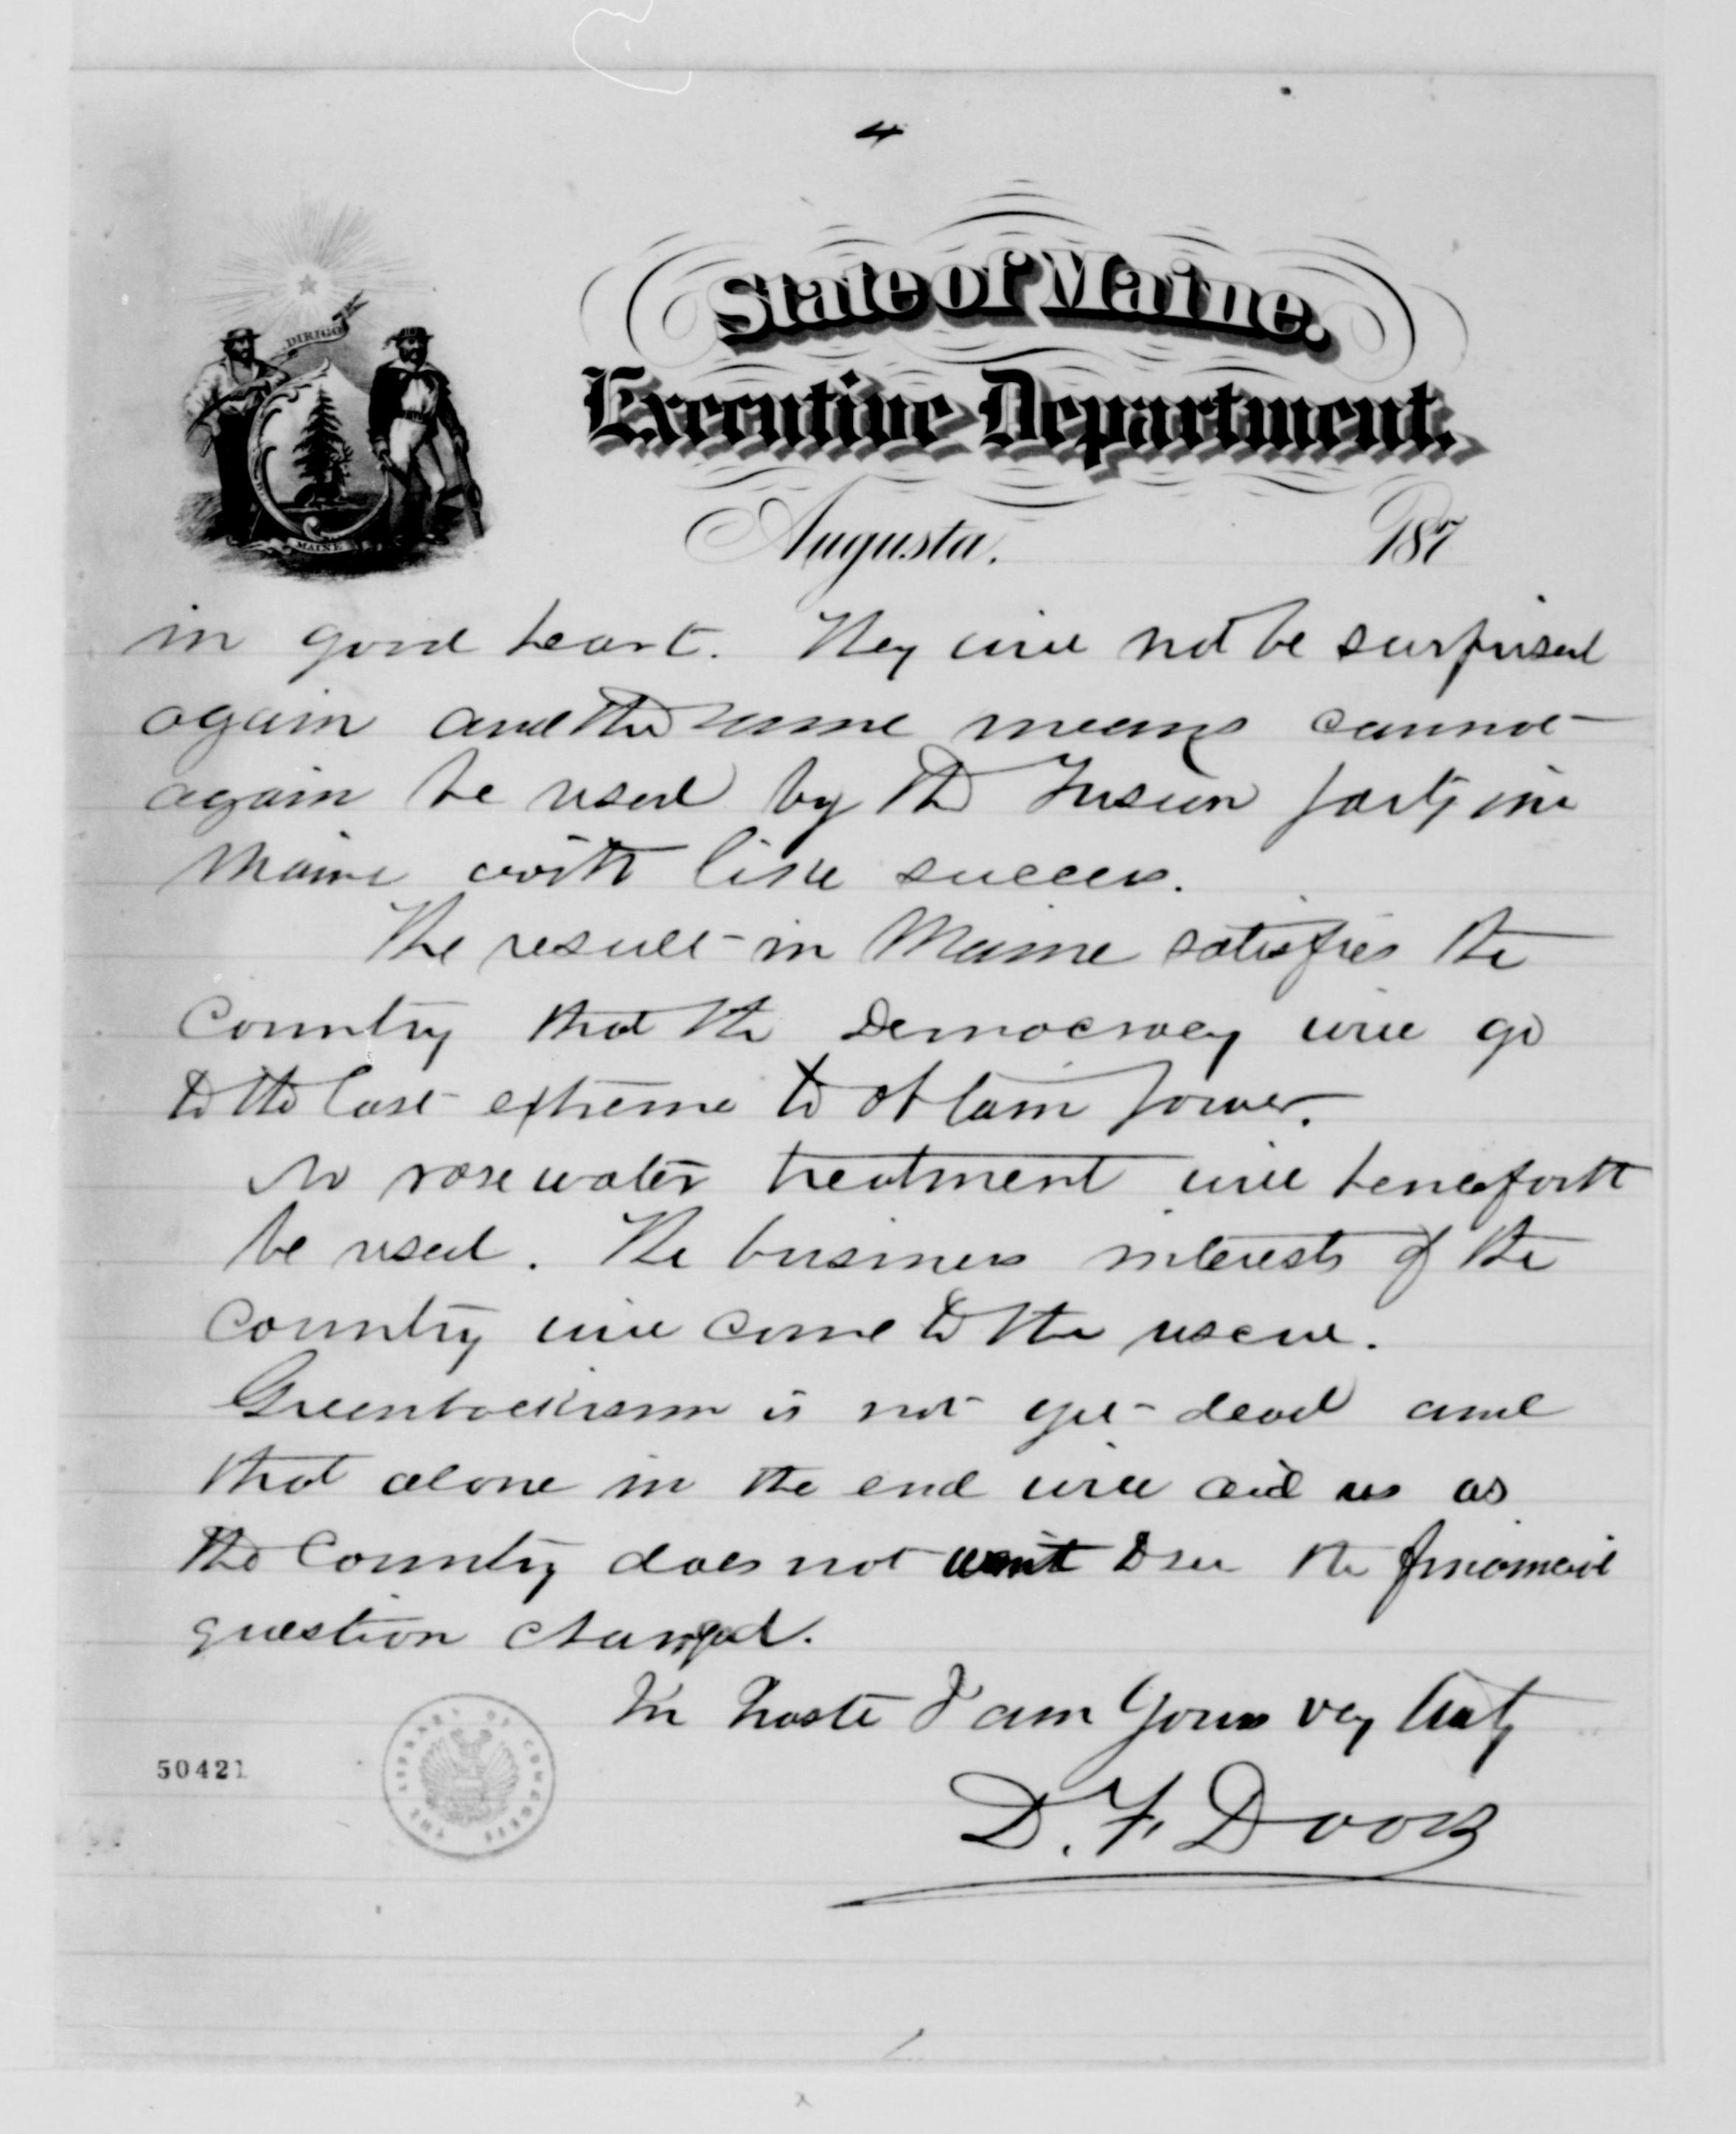 4
DIRIGO
MAINE
State of Maine.
Executive Department.
Augusta. 187
in good heart. They will not be surprised
again and the same means cannot
again be used by the Fusion party in
Maine with like success.
The result in Maine satisfies the
Country that the Democracy will go
to the last extreme to obtain power.
No rose water treatment will henceforth
be used. The business interests of the
Country will come to the rescue.
Greenbackism is not yet dead and
that alone in the end will aid us as
the Country does not want to see the financial
question changed.
In haste I am Yours very truly
D. F. Davis
50421
THE LIBRARY OF CONGRESS